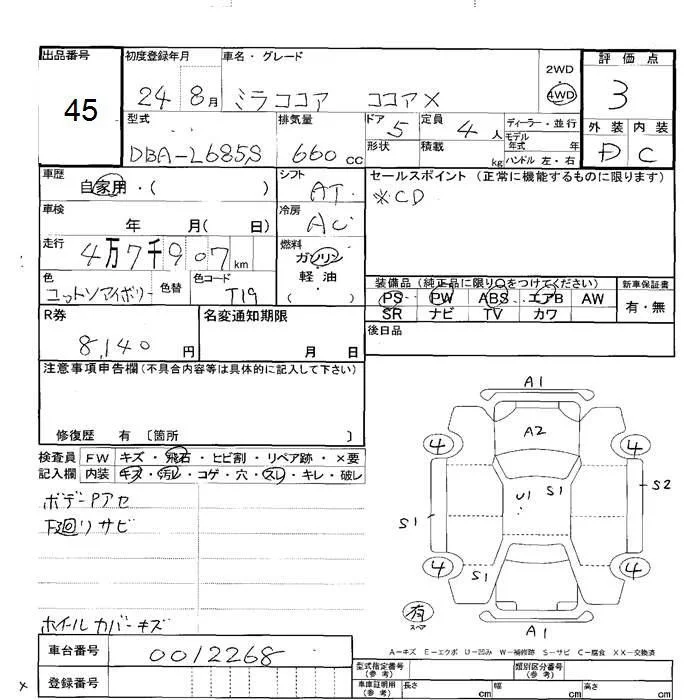 出品番号
45
初度登録年月
24 8月
車名・グレード
ミラココア ココアX
2WD
4WD
評価点
3
型式
DBA-L685S
排気量
660cc
ドア
5
定員
4人
形状
積載
kg
ディーラー・並行
モデル年式 年
ハンドル 左・右
外装
D
内装
C
車歴
自家用・( )
シフト
AT
セールスポイント (正常に機能するものに限ります)
※CD
車検
年 月( 日)
冷房
AC
走行
4万7千907km
燃料
ガソリン
(軽油)
色
コットンアイボリー
色替
色コード
T19
装備品 (純正品に限り○をつけてください)
PS PW ABS エアB AW
SR ナビ TV カワ
新車保証書
有・無
R券
8,140円
名変通知期限
月 日
後日品
注意事項申告欄(不具合内容等は具体的に記入して下さい)
修復歴 有 〔箇所 〕
検査員記入欄
FW キズ・飛石・ヒビ割・リペア跡・×要
内装 キズ・汚レ・コゲ・穴・スレ・キレ・破レ
ボデーPアセ
下廻リサビ
ホイルカバーキズ
A1
A2
4
4
U1
S1
S2
S1
4
4
S1
有
スペア
A1
A-キズ E-エクボ U-凹み W-補修跡 S-サビ C-腐食 XX-交換済
車台番号
0012268
× 登録番号
型式指定番号(参考)
類別区分番号(参考)
車庫証明用(参考)
長さ cm
幅 cm
高さ cm